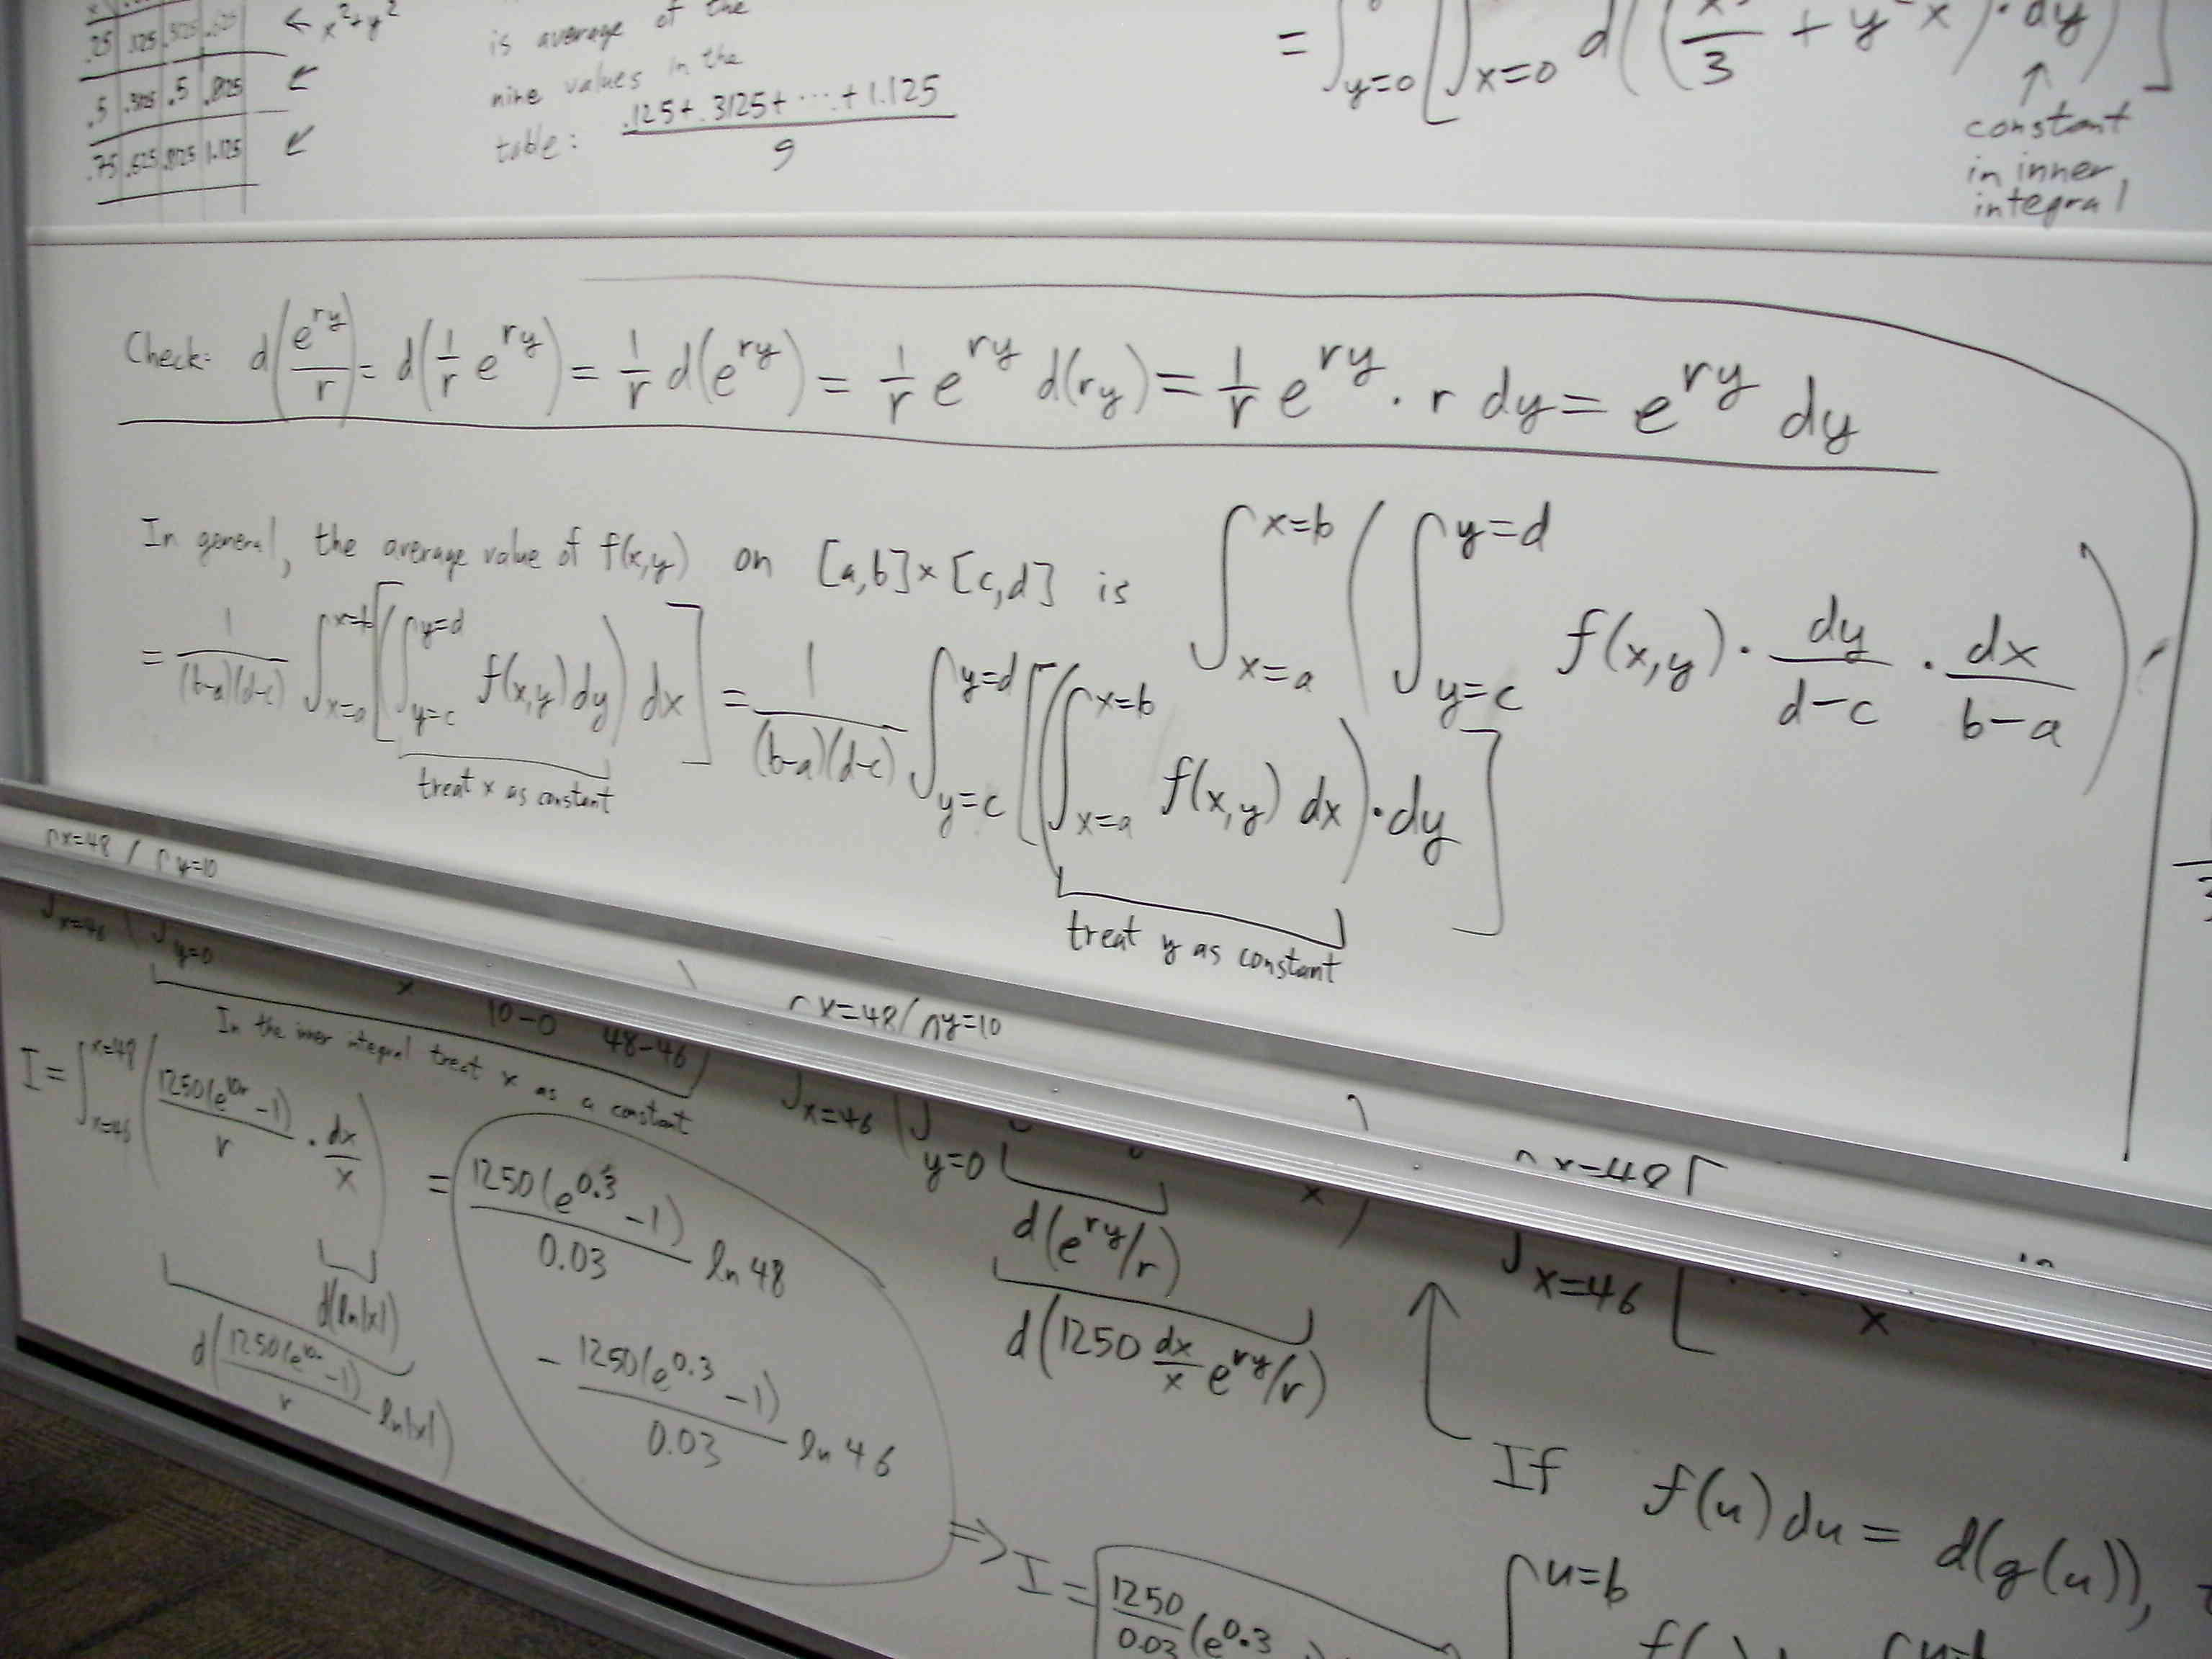 .25 .125 .3125 .625 ← x²+y²
.5 .3125 .5 .8125 ↙
.75 .625 .8125 1.125 ↙
is average of the
nine values in the
table: (.125+.3125+⋯+1.125)/9
= ∫_{y=0} [∫_{x=0} d((x³/3 + y²x)·dy)]
↑
constant
in inner
integral
Check: d(e^{ry}/r) = d(1/r e^{ry}) = 1/r d(e^{ry}) = 1/r e^{ry} d(ry) = 1/r e^{ry} · r dy = e^{ry} dy
In general, the average value of f(x,y) on [a,b]×[c,d] is ∫_{x=a}^{x=b} (∫_{y=c}^{y=d} f(x,y) · dy/(d-c) · dx/(b-a))
= 1/((b-a)(d-c)) ∫_{x=a}^{x=b} [(∫_{y=c}^{y=d} f(x,y) dy) dx] = 1/((b-a)(d-c)) ∫_{y=c}^{y=d} [(∫_{x=a}^{x=b} f(x,y) dx)·dy]
treat x as constant
treat y as constant
x=48 / y=10
x=46 y=0
x 10-0 48-46
In the inner integral treat x as a constant
I = ∫_{x=46}^{x=48} (1250(e^{10r}-1)/r · dx/x) = 1250(e^{0.3}-1)/0.03 ln 48
- 1250(e^{0.3}-1)/0.03 ln 46
d(ln|x|)
d(1250(e^{10r}-1)/r ln|x|)
x=48 / y=10
∫_{x=46} (∫_{y=0} x)
d(e^{ry}/r)
d(1250 dx/x e^{ry}/r)
x=48 [
∫_{x=46} [ x
↑
If f(u) du = d(g(u)),
∫^{u=b}
⇒ I = 1250/0.03 (e^{0.3}